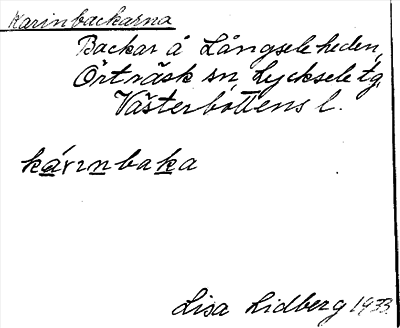 Karinbackarna
Backar å Långsele heden,
Örträsk sn, Lycksele tg.
Västerbottens l.
kárinbaka
Lisa Lidberg 1933.